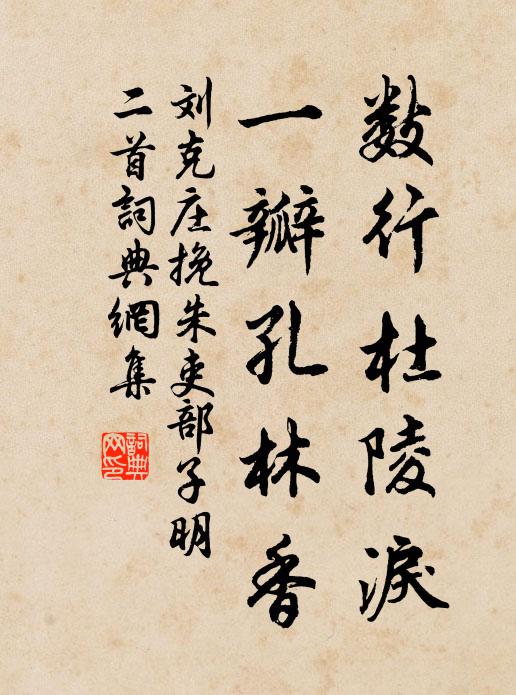 数行杜陵淚
一瓣孔林香
刘克庄挽朱吏部子明
二首詞典網集
詞典
网印